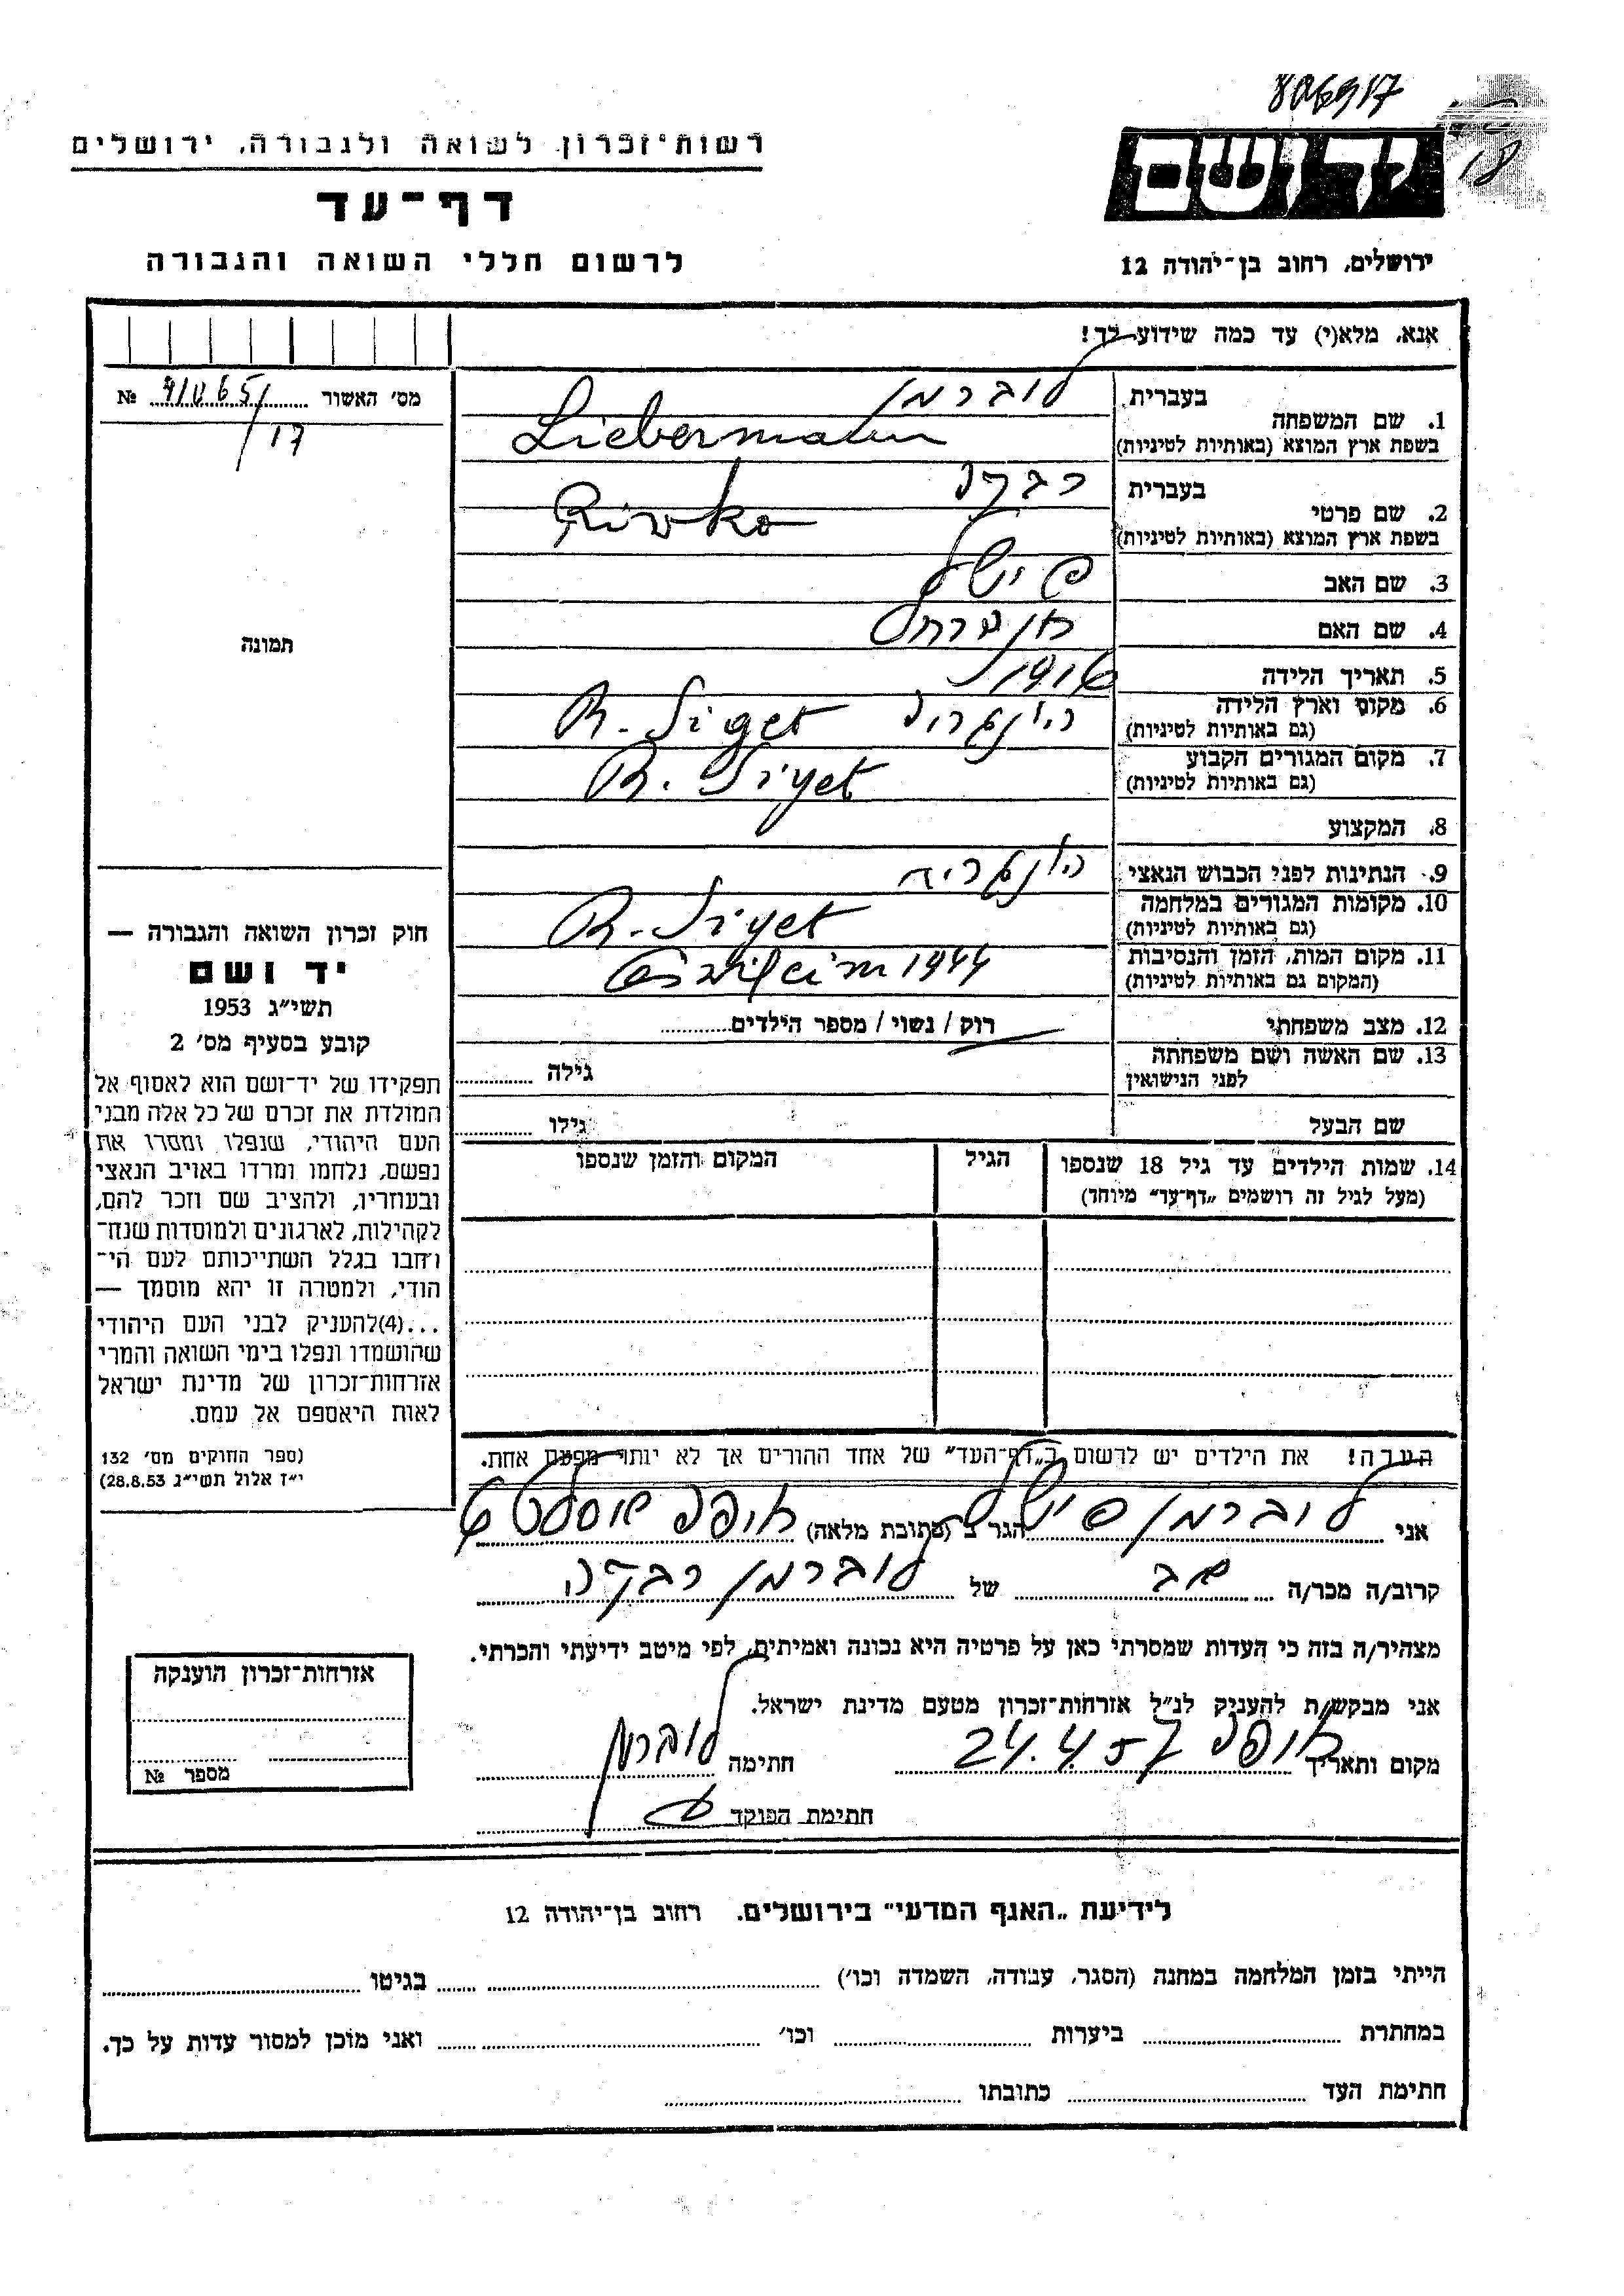 806917
רשות־זכרון לשואה ולגבורה, ירושלים
דף־עד
לרשום חללי השואה והגבורה
יד ושם
ירושלים, רחוב בן־יהודה 12
אנא, מלא(י) עד כמה שידוע לך!
מס׳ האשור № 
17
תמונה
חוק זכרון השואה והגבורה —
יד ושם
תשי״ג 1953
קובע בסעיף מס׳ 2
תפקידו של יד־ושם הוא לאסוף אל
המולדת את זכרם של כל אלה מבני
העם היהודי, שנפלו ומסרו את
נפשם, נלחמו ומרדו באויב הנאצי
ובעוזריו, ולהציב שם וזכר להם,
לקהילות, לארגונים ולמוסדות שנח־
רחבו בגלל השתייכותם לעם הי־
הודי, ולמטרה זו יהא מוסמך —
...(4)להעניק לבני העם היהודי
שהושמדו ונפלו בימי השואה והמרי
אזרחות־זכרון של מדינת ישראל
לאות היאספם אל עמם.
(ספר החוקים מס׳ 132
י״ז אלול תשי״ג 28.8.53)
1. שם המשפחה
בעברית לוברמן
בשפת ארץ המוצא (באותיות לטיניות) Liebermann
2. שם פרטי
בעברית רבקה
בשפת ארץ המוצא (באותיות לטיניות) Rivko
3. שם האב פישל
4. שם האם
5. תאריך הלידה 1916
6. מקום וארץ הלידה
(גם באותיות לטיניות) הונגריה R. Siget
7. מקום המגורים הקבוע
(גם באותיות לטיניות) R. Siget
8. המקצוע
9. הנתינות לפני הכבוש הנאצי הונגריה
10. מקומות המגורים במלחמה
(גם באותיות לטיניות) R. Siget
11. מקום המות, הזמן והנסיבות
(המקום גם באותיות לטיניות) 1944
12. מצב משפחתי רווק / נשוי / מספר הילדים
13. שם האשה ושם משפחתה
לפני הנישואין גילה
שם הבעל גילו
14. שמות הילדים עד גיל 18 שנספו הגיל המקום והזמן שנספו
(מעל לגיל זה רושמים „דף־עד״ מיוחד)
הערה! את הילדים יש לרשום ב„דף־העד״ של אחד ההורים אך לא יותר מפעם אחת.
אני לוברמן פישל הגר ב (כתובת מלאה)
קרוב/ה מכר/ה אב של לוברמן רבקה
מצהיר/ה בזה כי העדות שמסרתי כאן על פרטיה היא נכונה ואמיתית, לפי מיטב ידיעתי והכרתי.
אני מבקש/ת להעניק לנ״ל אזרחות־זכרון מטעם מדינת ישראל.
מקום ותאריך 24.4.57 חתימה לוברמן
חתימת הפוקד
אזרחות־זכרון הוענקה
מספר №
לידיעת „האגף המדעי״ בירושלים. רחוב בן־יהודה 12
הייתי בזמן המלחמה במחנה (הסגר, עבודה, השמדה וכו׳) בגיטו
במחתרת ביערות וכו׳ ואני מוכן למסור עדות על כך.
חתימת העד כתובתו